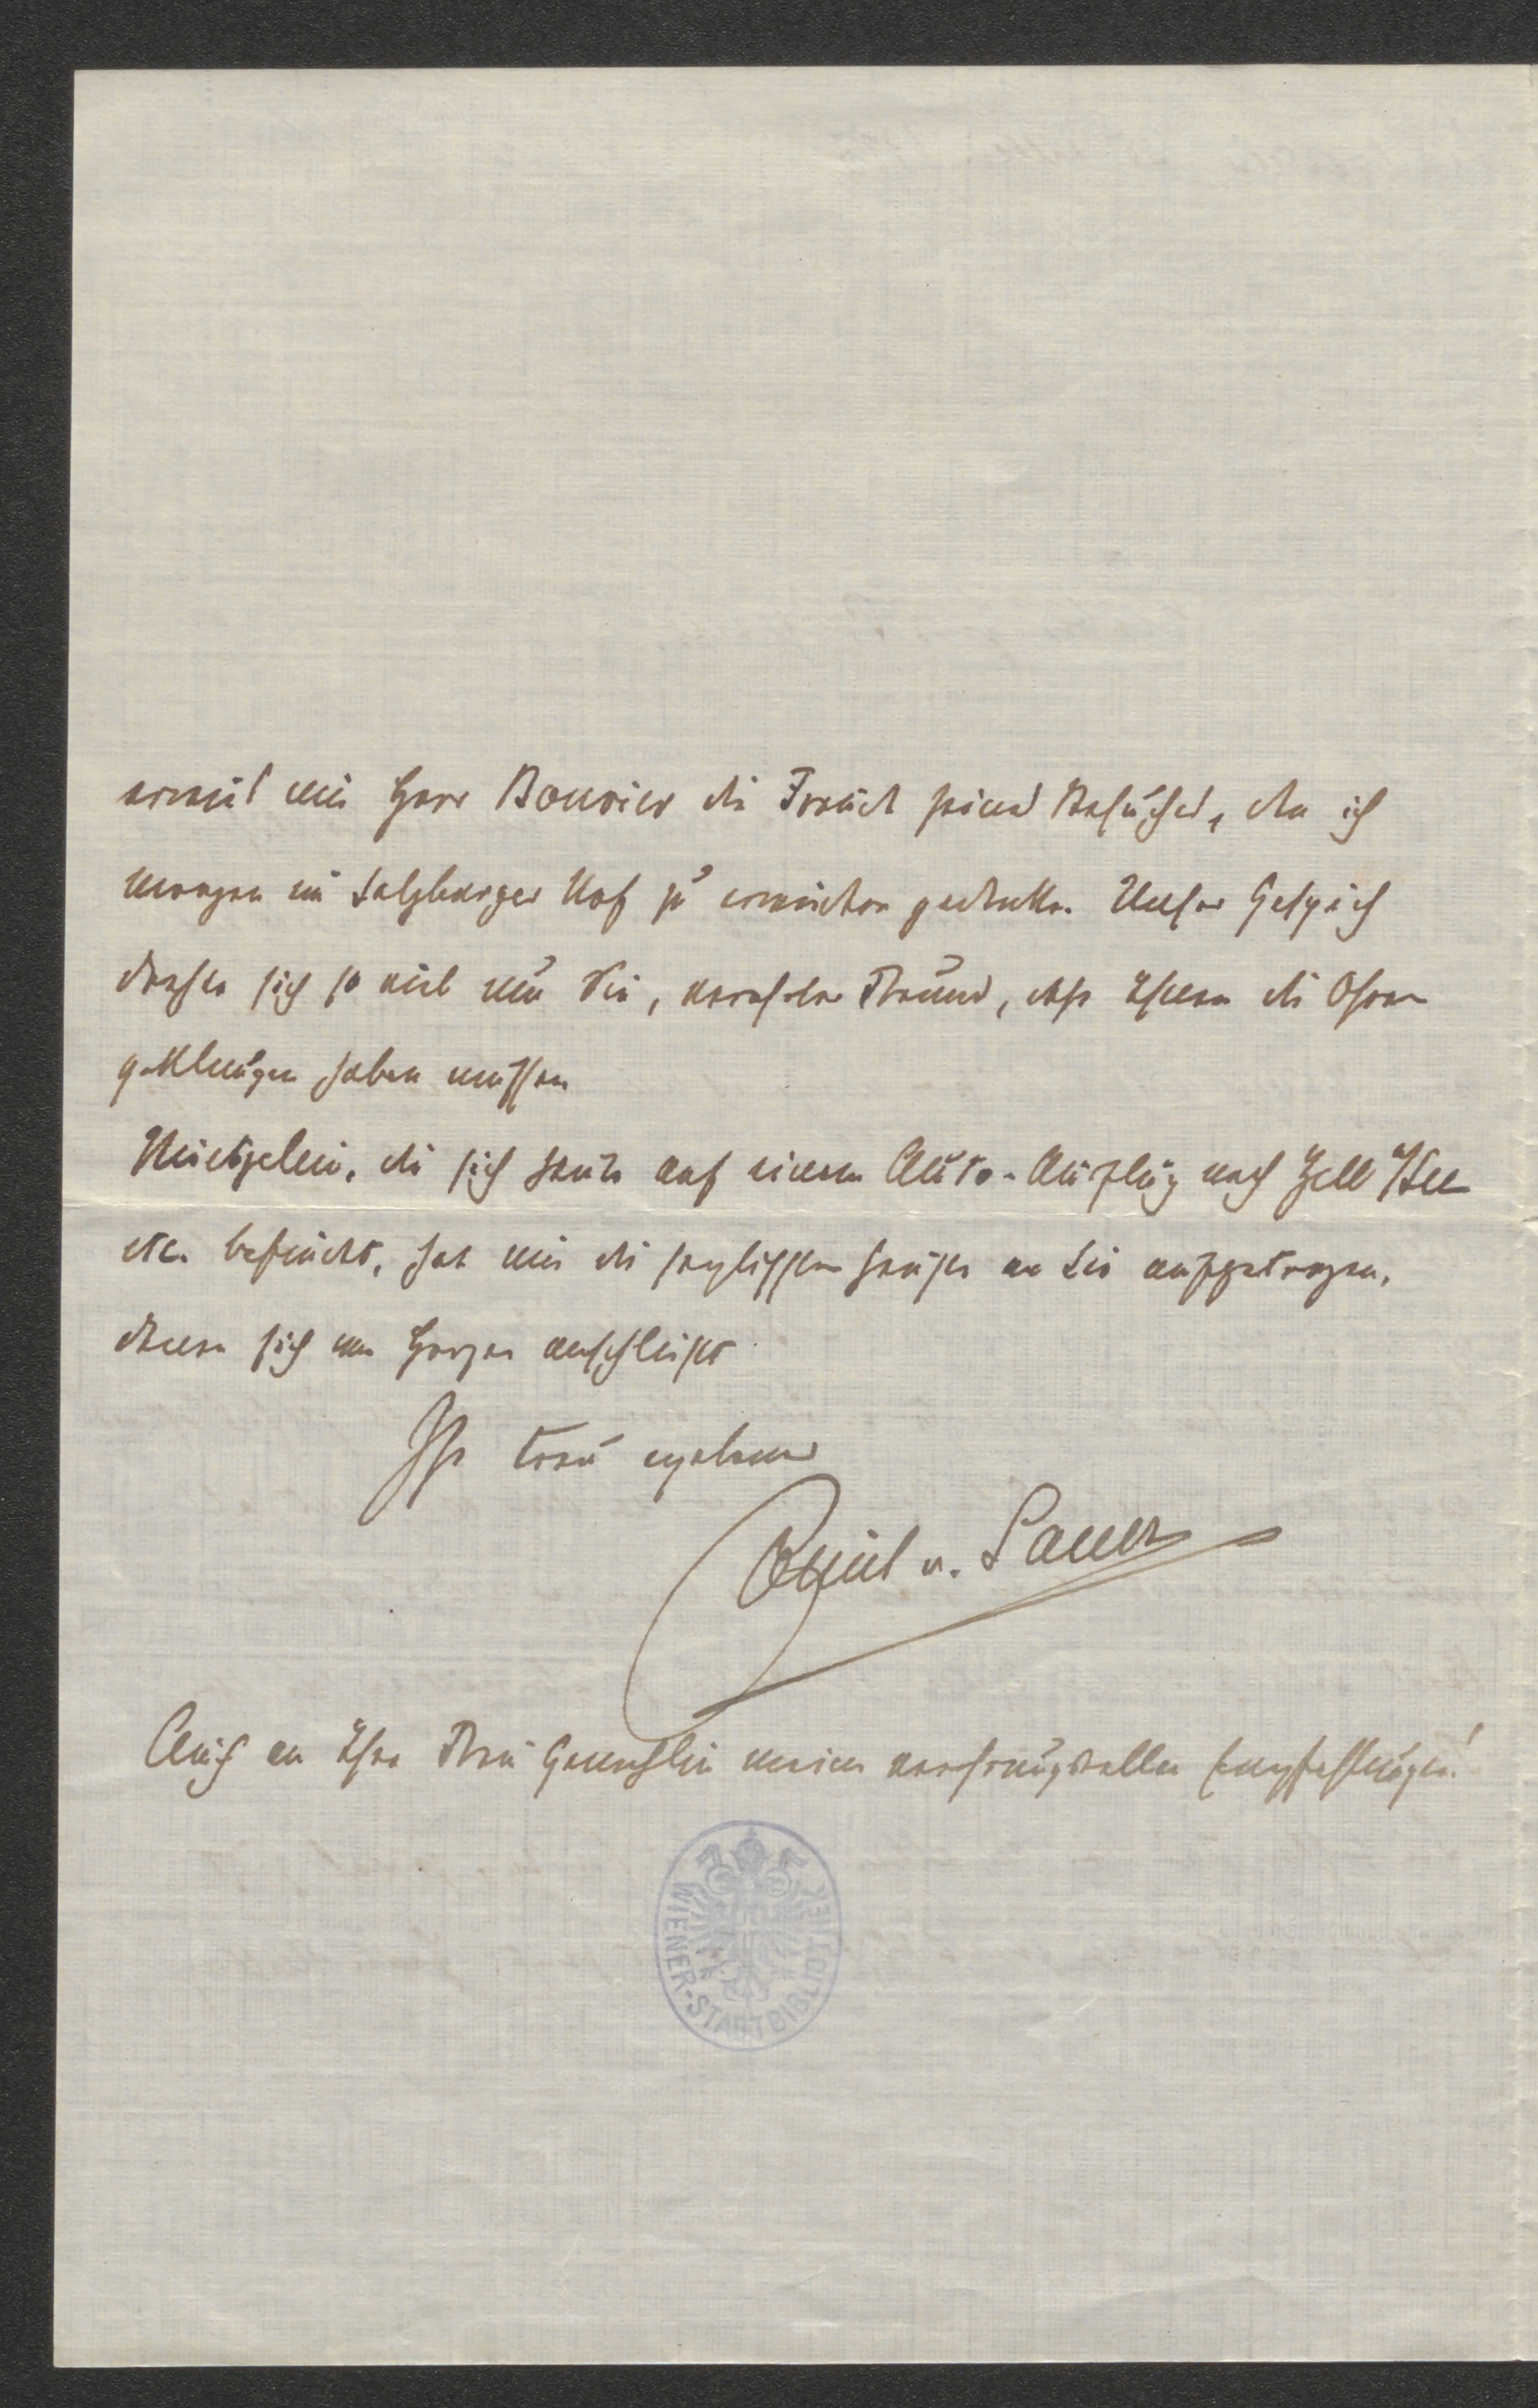 erwies mir Herr Bouvier die Freude seines Besuches, den ich
morgen im Salzburger Hof zu erwidern gedenke. Unser Gespräch
drehte sich so viel um Sie, verehrter Freund, dass Ihnen die Ohren
geklungen haben müssen
die sich heute auf einem Auto-Ausflug nach Zell /See
etc. befindet, hat mir die herzlichsten Grüsse an Sie aufgetragen,
denen sich von Herzen anschliesst
Ihr treu ergebener
Emil v. Sauer
Auch an Ihre Frau Gemahlin meine verehrungsvollen Empfehlungen!
WIENER-STADTBIBLIOTHEK